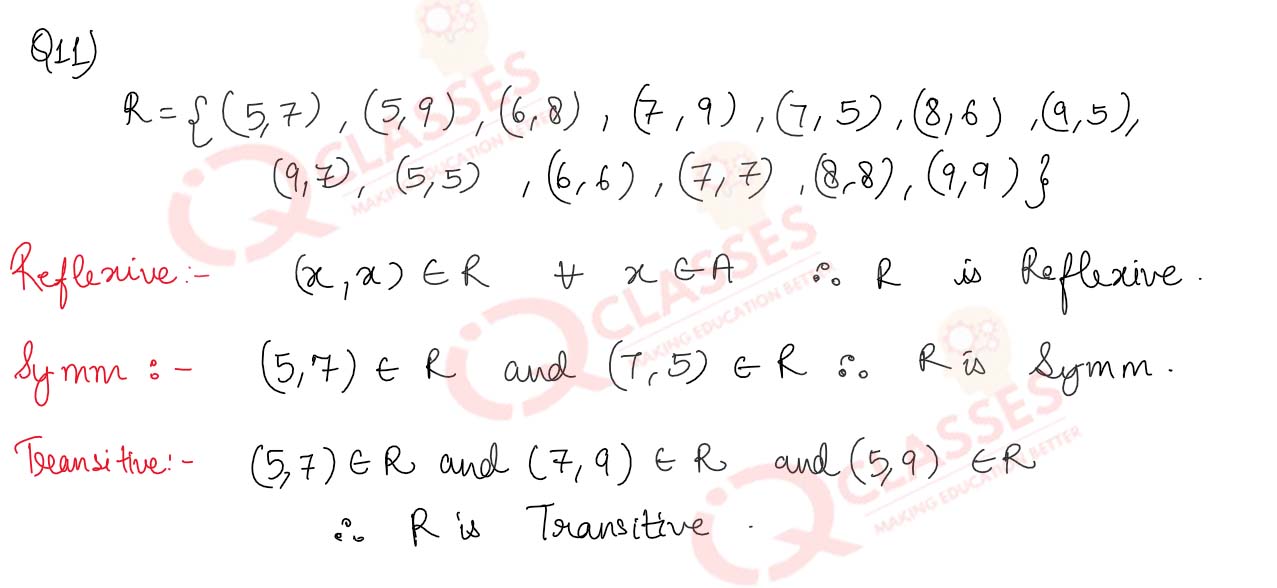 Q11)
R = { (5,7) , (5,9) , (6,8) , (7,9) , (7,5) , (8,6) , (9,5),
(9,7), (5,5) , (6,6) , (7,7) , (8,8) , (9,9) }
Reflexive:- (x,x) ∈ R ∀ x ∈ A ∴ R is Reflexive.
Symm :- (5,7) ∈ R and (7,5) ∈ R ∴ R is Symm.
Transitive:- (5,7) ∈ R and (7,9) ∈ R and (5,9) ∈ R
∴ R is Transitive.
IQ CLASSES
MAKING EDUCATION BETTER
IQ CLASSES
MAKING EDUCATION BETTER
IQ CLASSES
MAKING EDUCATION BETTER